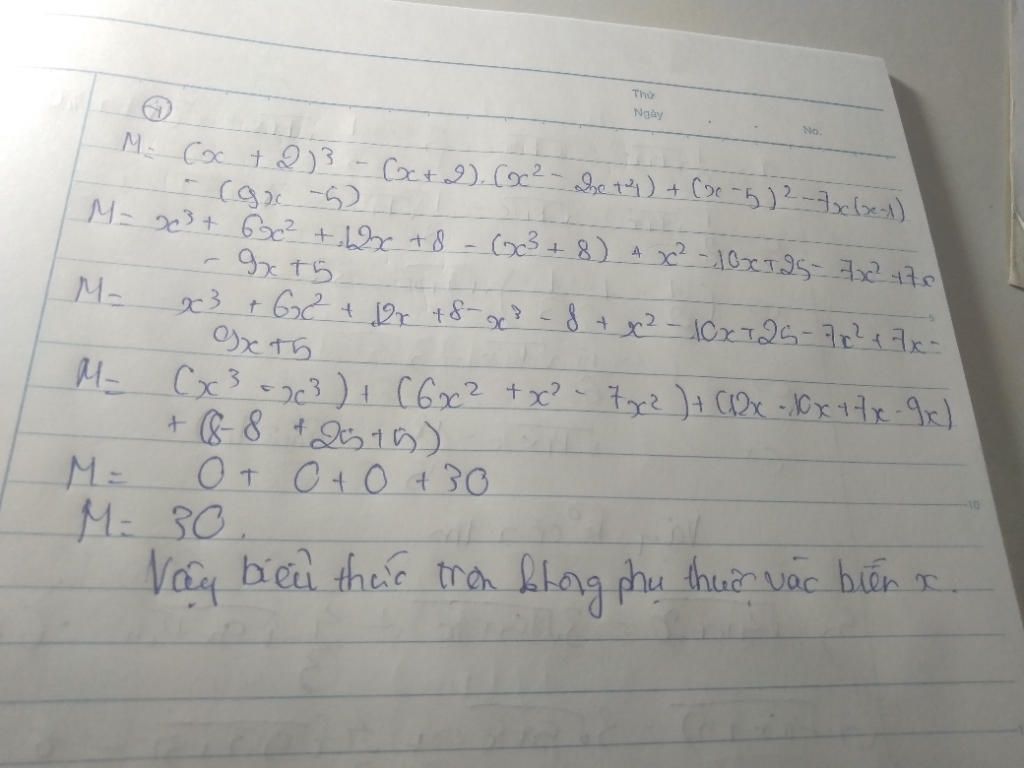 Thứ
Ngày
No.
④
M= (x + 2)³ - (x+2).(x² - 2x+4) + (x-5)² - 7x(x-1)
- (9x - 5)
M= x³ + 6x² + 12x + 8 - (x³ + 8) + x² - 10x + 25 - 7x² + 7x
- 9x + 5
M= x³ + 6x² + 12x + 8 - x³ - 8 + x² - 10x + 25 - 7x² + 7x -
9x + 5
M= (x³ - x³) + (6x² + x² - 7x²) + (12x - 10x + 7x - 9x)
+ (8 - 8 + 25 + 5)
M= 0 + 0 + 0 + 30
M= 30.
Vậy biểu thức trên không phụ thuộc vào biến x.
10